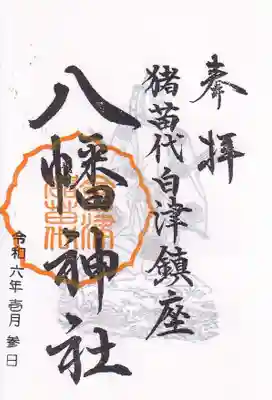 奉拝
猪苗代白津鎮座
八幡神社
令和六年壱月参日